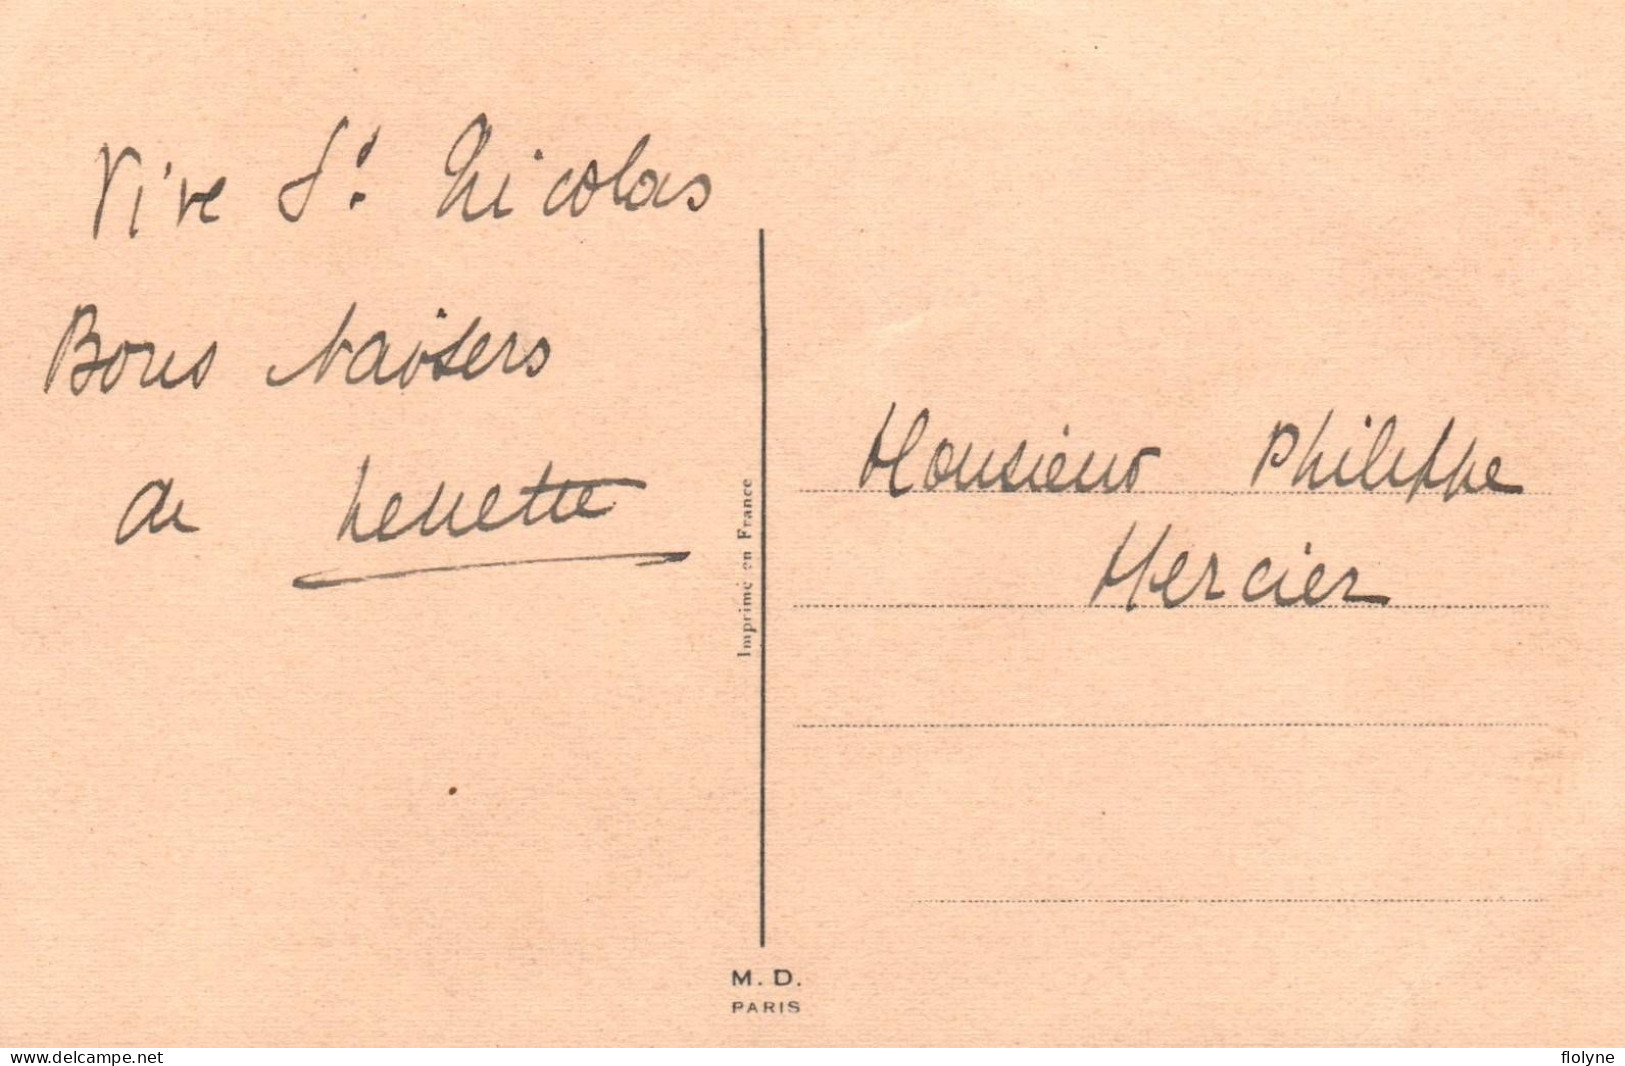 Vive St. Nicolas
Bons baisers
de
Imprimé en France
Monsieur Philippe
Mercier
M. D.
PARIS
www.delcampe.net
flolyne